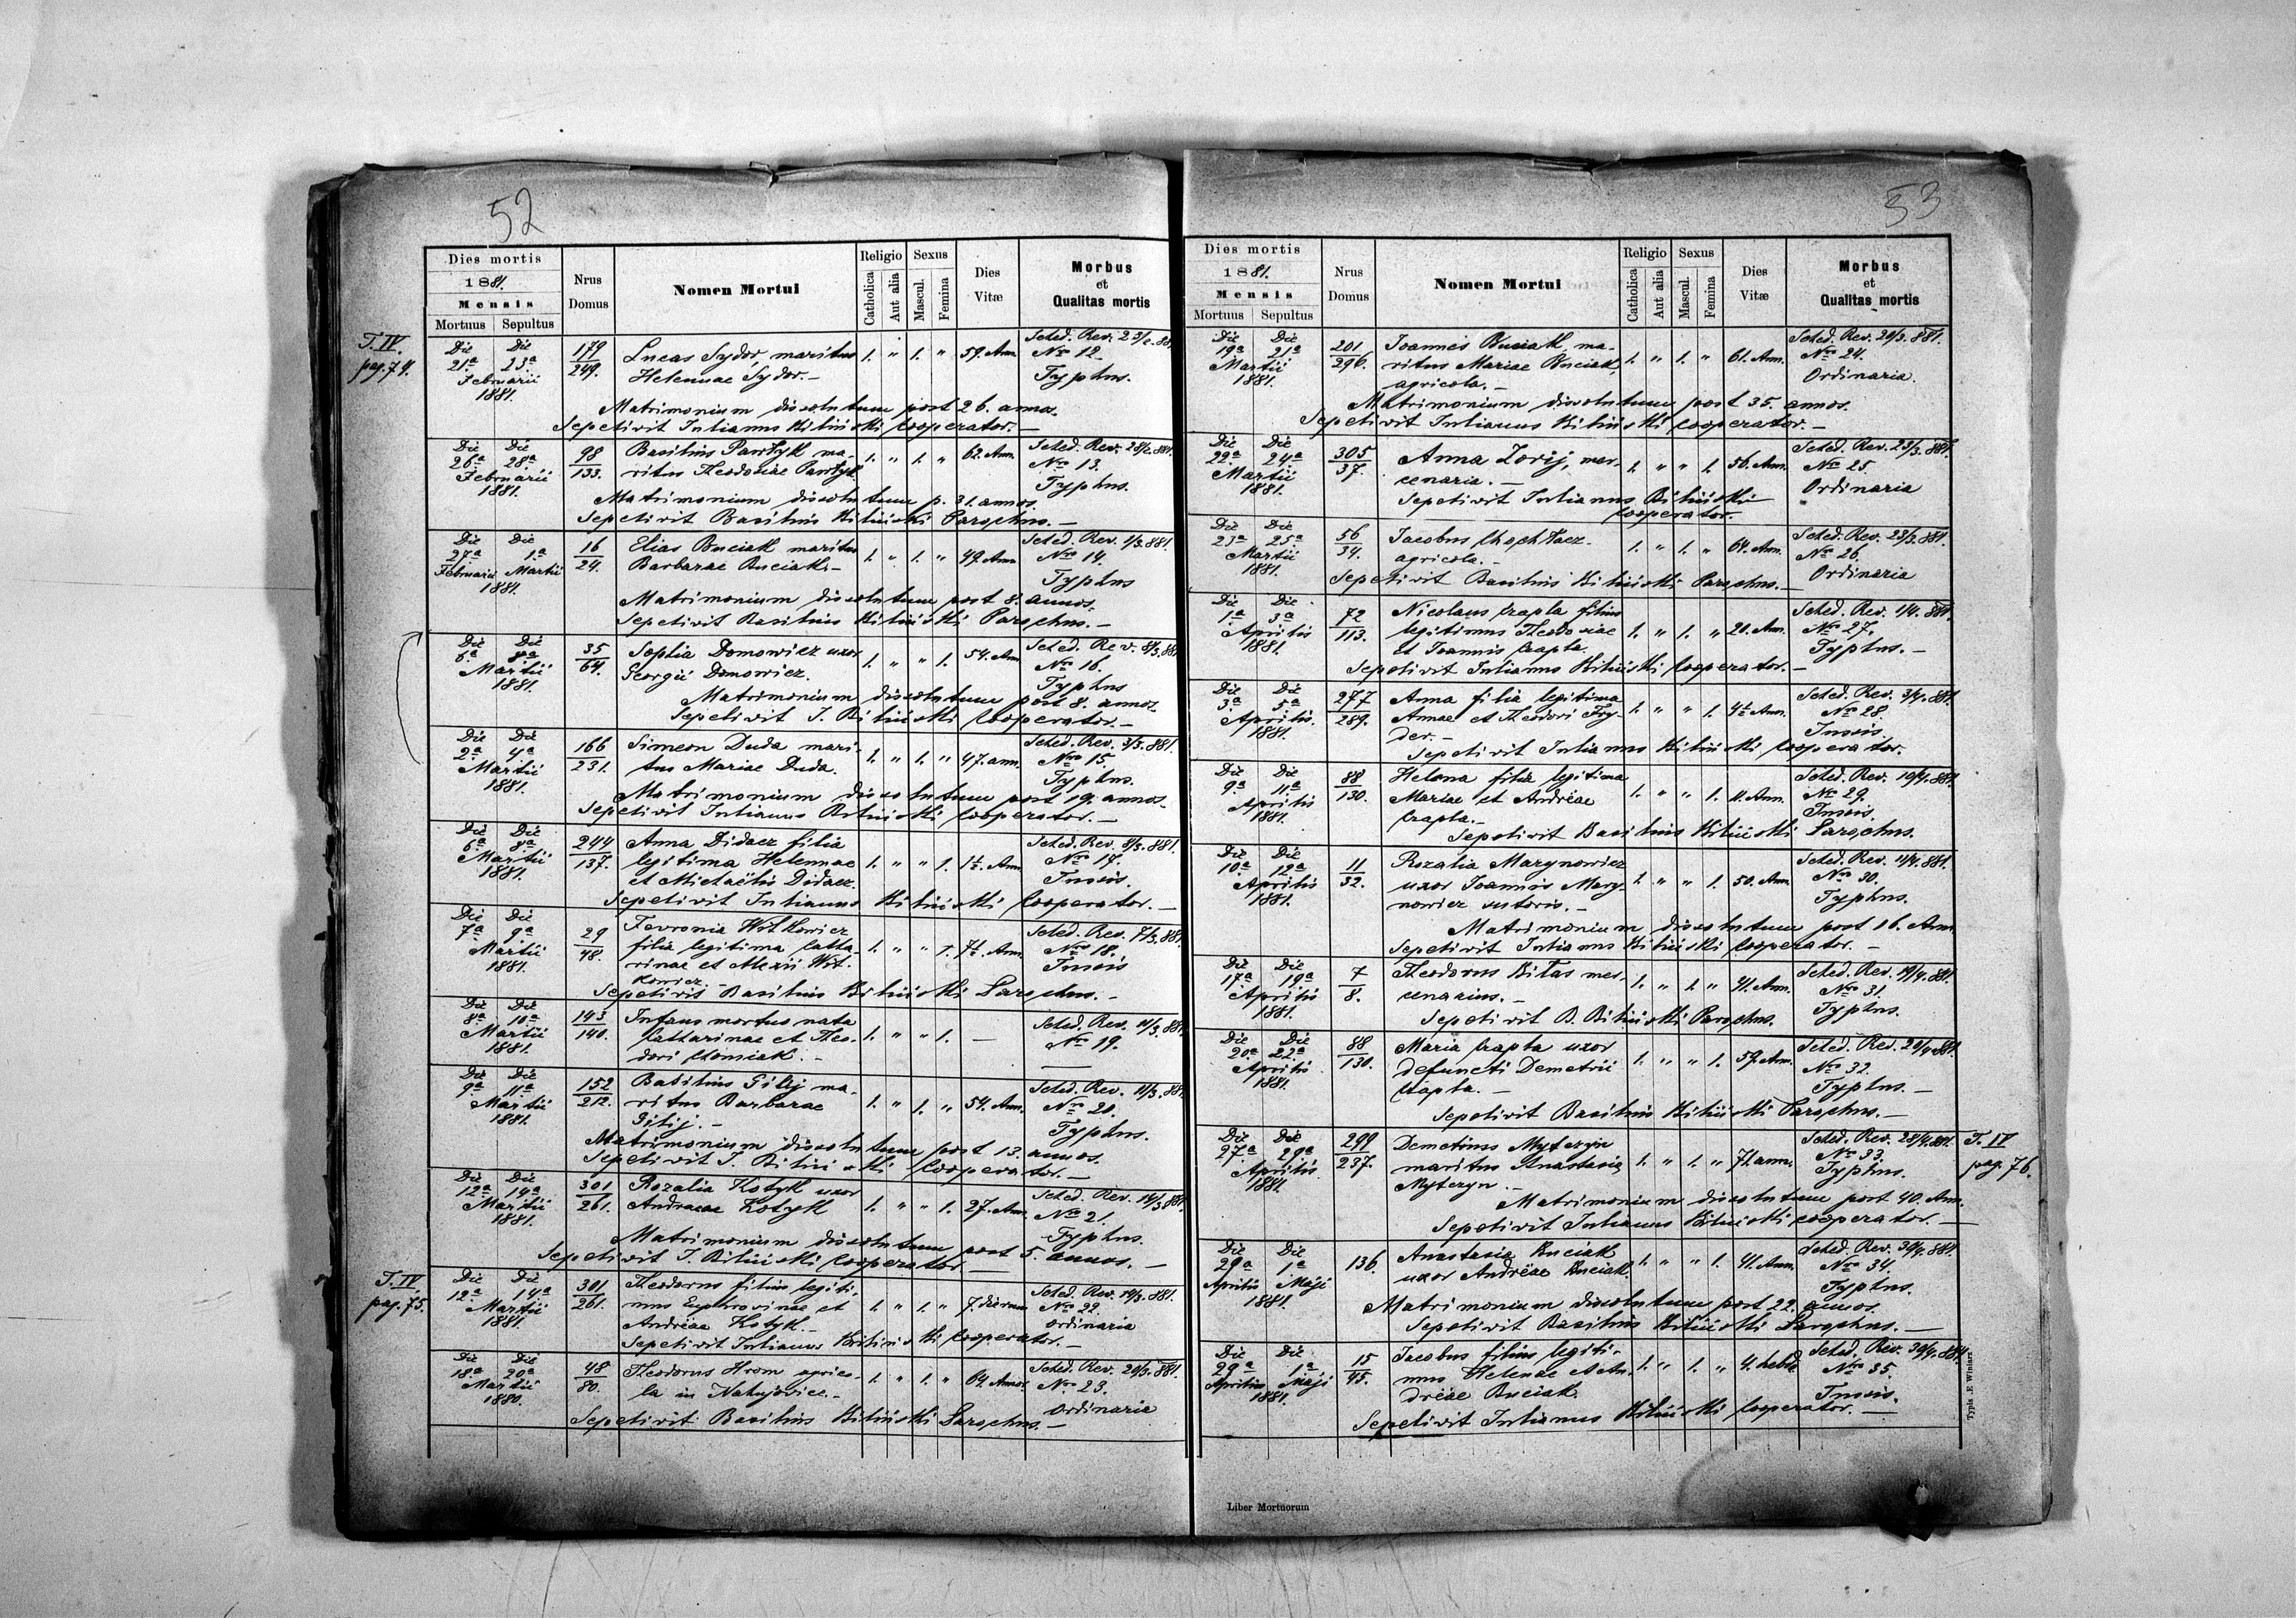 52
Dies mortis
1881.
Mensis
Mortuus Sepultus
Nrus Domus
Nomen Mortui
Religio
Catholica
Aut alia
Sexus
Mascul.
Femina
Dies Vitæ
Morbus et Qualitas mortis
T. IV. pag. 74.
Die 21a Die 23a Februarii 1881.
179/249.
Lucas Sydor, maritus
Helennae Sydor.—
1. " 1. " 59. Ann.
Sched. Rev. 23/2. 881
Nro 12
Typhus.
Matrimonium dissolutum post 26. annos.
Sepelivit Julianus Biliński Cooperator.—
Die 26a Die 28a Februarii 1881.
98/133.
Basilius Pawłyk ma-
ritus Theodosiae Pawłyk
1. " 1. " 62. Ann.
Sched. Rev. 28/2. 881.
Nro 13.
Typhus.
Matrimonium dissolutum p. 31. annos.
Sepelivit Basilius Biliński Parochus.—
Die 27a Februarii Die 1.a Martii 1881.
16/24.
Elias Buciak maritus
Barbarae Buciak.—
1. " 1. " 49. Ann
Sched. Rev. 1/3. 881.
Nro 14.
Typhus
Matrimonium dissolutum post 8. annos.
Sepelivit Basilius Biliński Parochus.—
Die 6a Die 8a Martii 1881.
35/64.
Sophia Domowicz uxor
Georgii Domowicz.
1. " " 1. 54. Ann
Sched. Rev. 8/3. 881
Nro 16.
Typhus
Matrimonium dissolutum post 8. annos.
Sepelivit J. Biliński Cooperator.—
Die 2a Die 4a Martii 1881.
166/231.
Simeon Duda mari-
tus Mariae Duda.
1. " 1. " 47. ann.
Sched. Rev. 3/3. 881.
Nro 15.
Typhus.
Matrimonium dissolutum post 19. annos.
Sepelivit Julianus Biliński Cooperator.—
Die 6a Die 8a Martii 1881.
244/137.
Anna Didacz filia
legitima Helennae
et Michaëlis Didacz.
1. " " 1. 1½. Ann
Sched. Rev. 8/3. 881.
Nro 17.
Tussis.
Sepelivit Julianus Biliński Cooperator.—
Die 7a Die 9a Martii 1881.
29/48.
Fevronia Witkowicz
filia legitima Catha-
rinae et Alexii Wit-
kowicz.—
1. " " 1. 7½. Ann.
Sched. Rev. 7/3. 881
Nro 18.
Tussis
Sepelivit Basilius Biliński Parochus.—
Die 8a Die 10a Martii 1881.
143/140.
Infans mortuo nata
Catharinae et Theo-
dori Chomiak.—
1. " " 1. —
Sched. Rev. 11/3. 881
Nro 19.
Die 9a Die 11a Martii 1881.
152/212.
Basilius Gilij ma-
ritus Barbarae
Gilij.—
1. " 1. " 54. Ann.
Sched. Rev. 11/3. 881
Nro 20.
Typhus.
Matrimonium dissolutum post 13. annos.
Sepelivit J. Biliński Cooperator.—
Die 12a Die 14a Martii 1881.
301/261.
Rozalia Kotyk uxor
Andreae Kotyk
1. " " 1. 27. Ann.
Sched. Rev. 14/3 881.
Nro 21.
Typhus.
Matrimonium dissolutum post 5. annos.
Sepelivit J. Biliński Cooperator.—
T. IV. pag. 75.
Die 12a Die 14a Martii 1881.
301/261.
Theodorus filius legiti-
mus Euphrosinae et
Andreae Kotyk.—
1. " 1. " 7. dierum
Sched. Rev. 14/3. 881.
Nro 22.
Ordinaria
Sepelivit Julianus Biliński Cooperator.—
Die 18a Die 20a Martii 1880.
48/80.
Theodorus Hrom agrico-
la in Nahujowice.—
1. " 1. " 64. Annor.
Sched. Rev. 20/3. 881.
Nro 23.
Ordinaria
Sepelivit Basilius Biliński Parochus.—
53
Dies mortis
1881.
Mensis
Mortuus Sepultus
Nrus Domus
Nomen Mortui
Religio
Catholica
Aut alia
Sexus
Mascul.
Femina
Dies Vitæ
Morbus et Qualitas mortis
Die 19a Die 21a Martii 1881.
201/296.
Joannes Buciak, ma-
ritus Mariae Buciak,
agricola.—
1. " 1. " 61. Ann.
Sched. Rev. 20/3. 881.
Nro 24.
Ordinaria.
Matrimonium dissolutum post 35. annos.
Sepelivit Julianus Biliński Cooperator.—
Die 22a Die 24a Martii 1881.
305/37.
Anna Zorij, mer-
cenaria.—
1. " " 1. 56. Ann.
Sched. Rev. 23/3. 881.
Nro 25.
Ordinaria
Sepelivit Julianus Biliński
Cooperator.
Die 23a Die 25a Martii 1881.
56/34.
Jacobus
agricola.—
1. " 1. " 64. Ann.
Sched. Rev. 23/3. 881.
Nro 26.
Ordinaria
Sepelivit Basilius Biliński Parochus.—
Die 1a Die 3a Aprilis 1881.
72/113.
Nicolaus Czapla filius
legitimus Theodosiae
et Joannis Czapla.
1. " 1. " 20. Ann.
Sched. Rev. 1/4. 881.
Nro 27.
Typhus.—
Sepelivit Julianus Biliński Cooperator.—
Die 3a Die 5a Aprilis. 1881.
277/289.
Anna filia legitima
Annae et Theodori Fry-
der.—
1. " " 1. 4½ Ann.
Sched. Rev. 3/4. 881.
Nro 28.
Tussis.
Sepelivit Julianus Biliński Cooperator.
Die 9a Die 11.a Aprilis 1881.
88/130.
Helena filia legitima
Mariae et Andreae
Czapla.—
1. " " 1. 11. Ann.
Sched. Rev. 10/4. 881.
Nro 29.
Tussis.
Sepelivit Basilius Biliński Parochus.
Die 10a Die 12a Aprilis 1881.
11/32.
Rozalia Marynowicz
uxor Joannis Mary-
nowicz sutoris.—
1. " " 1. 50. Ann.
Sched. Rev. 11/4. 881.
Nro 30.
Typhus.
Matrimonium dissolutum post 16. Ann
Sepelivit Julianus Biliński Cooperator.—
Die 17a Die 19a Aprilis 1881.
7/8.
Theodorus Bilas mer-
cenarius.—
1. " 1. " 41. Ann.
Sched. Rev. 19/4. 881.
Nro 31.
Typhus.
Sepelivit B. Biliński Parochus.
Die 20a Die 22a Aprilis 1881.
88/130.
Maria Czapla uxor
defuncti Demetrii
Czapla.—
1. " " 1. 59. Ann.
Sched. Rev. 20/4 881.
Nro 32.
Typhus.—
Sepelivit Basilius Biliński Parochus.—
Die 27a Die 29a Aprilis 1881.
299/237.
Demetrius Myteryn
maritus Anastasiae
Myteryn.—
1. " 1. " 71. anno.
Sched. Rev. 28/4. 881.
Nro 33.
Typhus.
T. IV pag. 76.
Matrimonium dissolutum post 40. Ann.
Sepelivit Julianus Biliński cooperator.—
Die 29a Aprilis Die 1a Maji 1881.
136.
Anastasia Buciak
uxor Andreae Buciak.
1. " " 1. 41. Ann.
Sched. Rev. 30/4. 881.
Nro 34.
Typhus.
Matrimonium dissolutum post 22. annos.
Sepelivit Basilius Biliński Parochus.—
Die 29a Aprilis Die 1a Maji 1881.
15/45.
Jacobus filius legiti-
mus Helenae et An-
dreae Buciak.
1. " 1. " 4. hebd.
Sched. Rev. 30/4. 881.
Nro 35.
Tussis.
Sepelivit Julianus Biliński Cooperator.—
Liber Mortuorum
Typis E. Winiarz